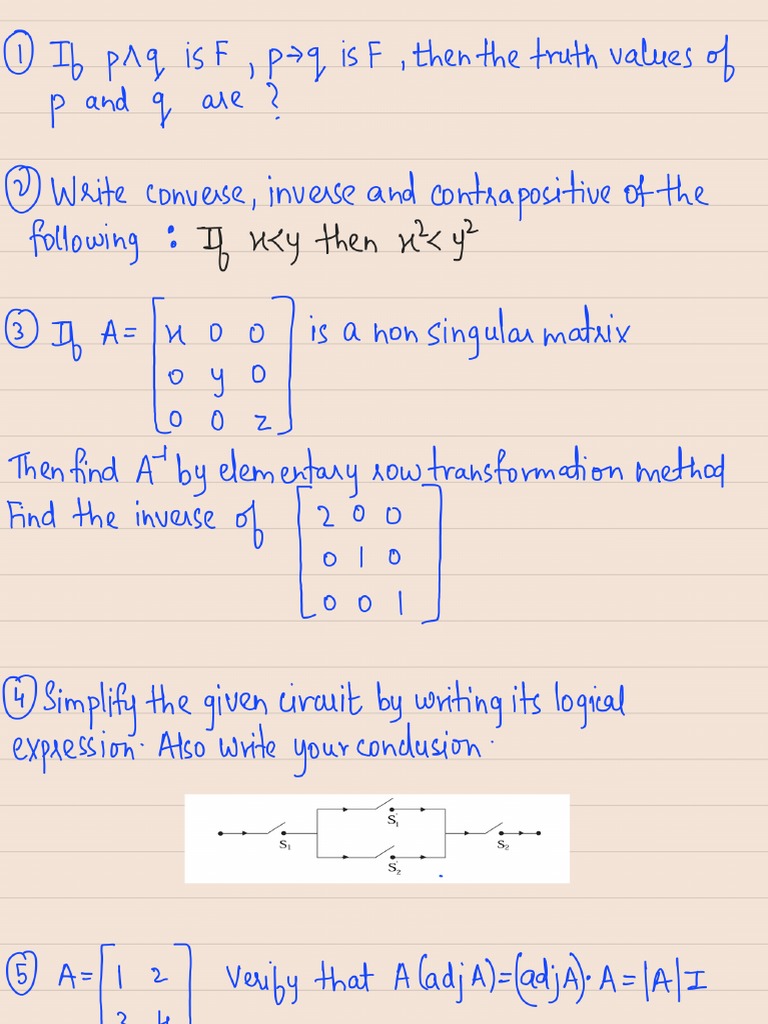 ① If p∧q is F, p→q is F, then the truth values of
p and q are ?
② Write converse, inverse and contrapositive of the
following : If x<y then x²< y²
③ If A= [x 0 0 is a non singular matrix
0 y 0
0 0 z]
Then find A⁻¹ by elementary row transformation method
Find the inverse of [2 0 0
0 1 0
0 0 1]
④ Simplify the given circuit by writing its logical
expression. Also write your conclusion.
S₁'
S₁ S₂
S₂'
⑤ A= [1 2 Verify that A(adjA)=(adjA)·A=|A|I